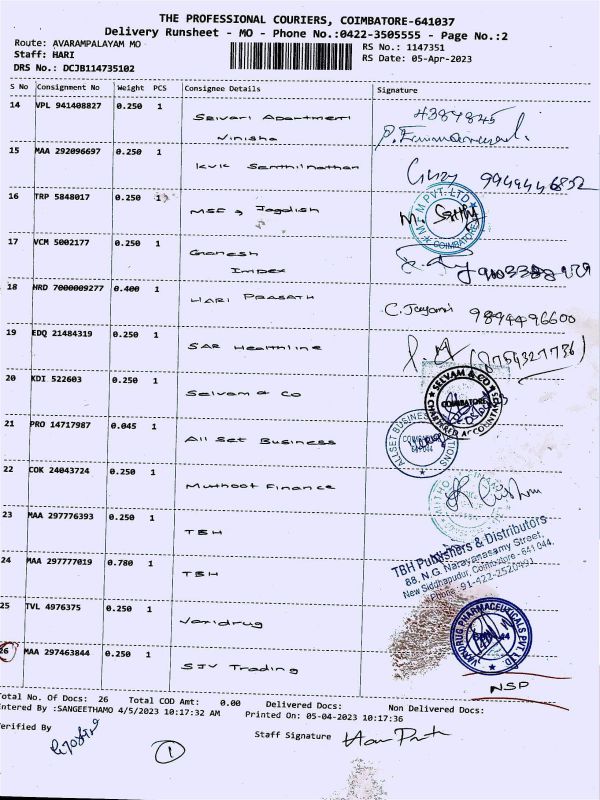 THE PROFESSIONAL COURIERS, COIMBATORE-641037
Delivery Runsheet - MO - Phone No.:0422-3505555 - Page No.:2
Route: AVARAMPALAYAM MO
RS No.: 1147351
Staff: HARI
RS Date: 05-Apr-2023
DRS No.: DCJB114735102
S No Consignment No Weight PCS Consignee Details Signature
14 VPL 941408827 0.250 1 Selvari Apartment 4387845
Vinisha
15 MAA 292096697 0.250 1 KVK Senthilnathan
16 TRP 5848017 0.250 1 MSF Jagdish
COIMBATORE
17 VCM 5002177 0.250 1 Ganesh
Impex
18 HRD 7000009277 0.400 1 HARI PRASATH C. Jayani 9894496600
19 EDQ 21484319 0.250 1 SAR Healthline
20 KDI 522603 0.250 1 Selvam & Co
SELVAM & CO
COIMBATORE
CHARTERED ACCOUNTANTS
21 PRO 14717987 0.045 1 All Set Business
ALLSET BUSINESS
22 COK 24043724 0.250 1 Muthoot Finance
23 MAA 297776393 0.250 1 TBH
24 MAA 297777019 0.780 1 TBH
TBH Publishers & Distributors
88, N.G. Narayanasamy Street,
New Siddhapudur, Coimbatore - 641 044.
Phone : 91-422-2520491
25 TVL 4976375 0.250 1 Vanidrug
VANIDRUG PHARMACEUTICALS PVT LTD
26 MAA 297463844 0.250 1 SJV Trading
NSP
Total No. Of Docs: 26 Total COD Amt: 0.00 Delivered Docs: Non Delivered Docs:
Entered By :SANGEETHAMO 4/5/2023 10:17:32 AM Printed On: 05-04-2023 10:17:36
Verified By
Staff Signature
1